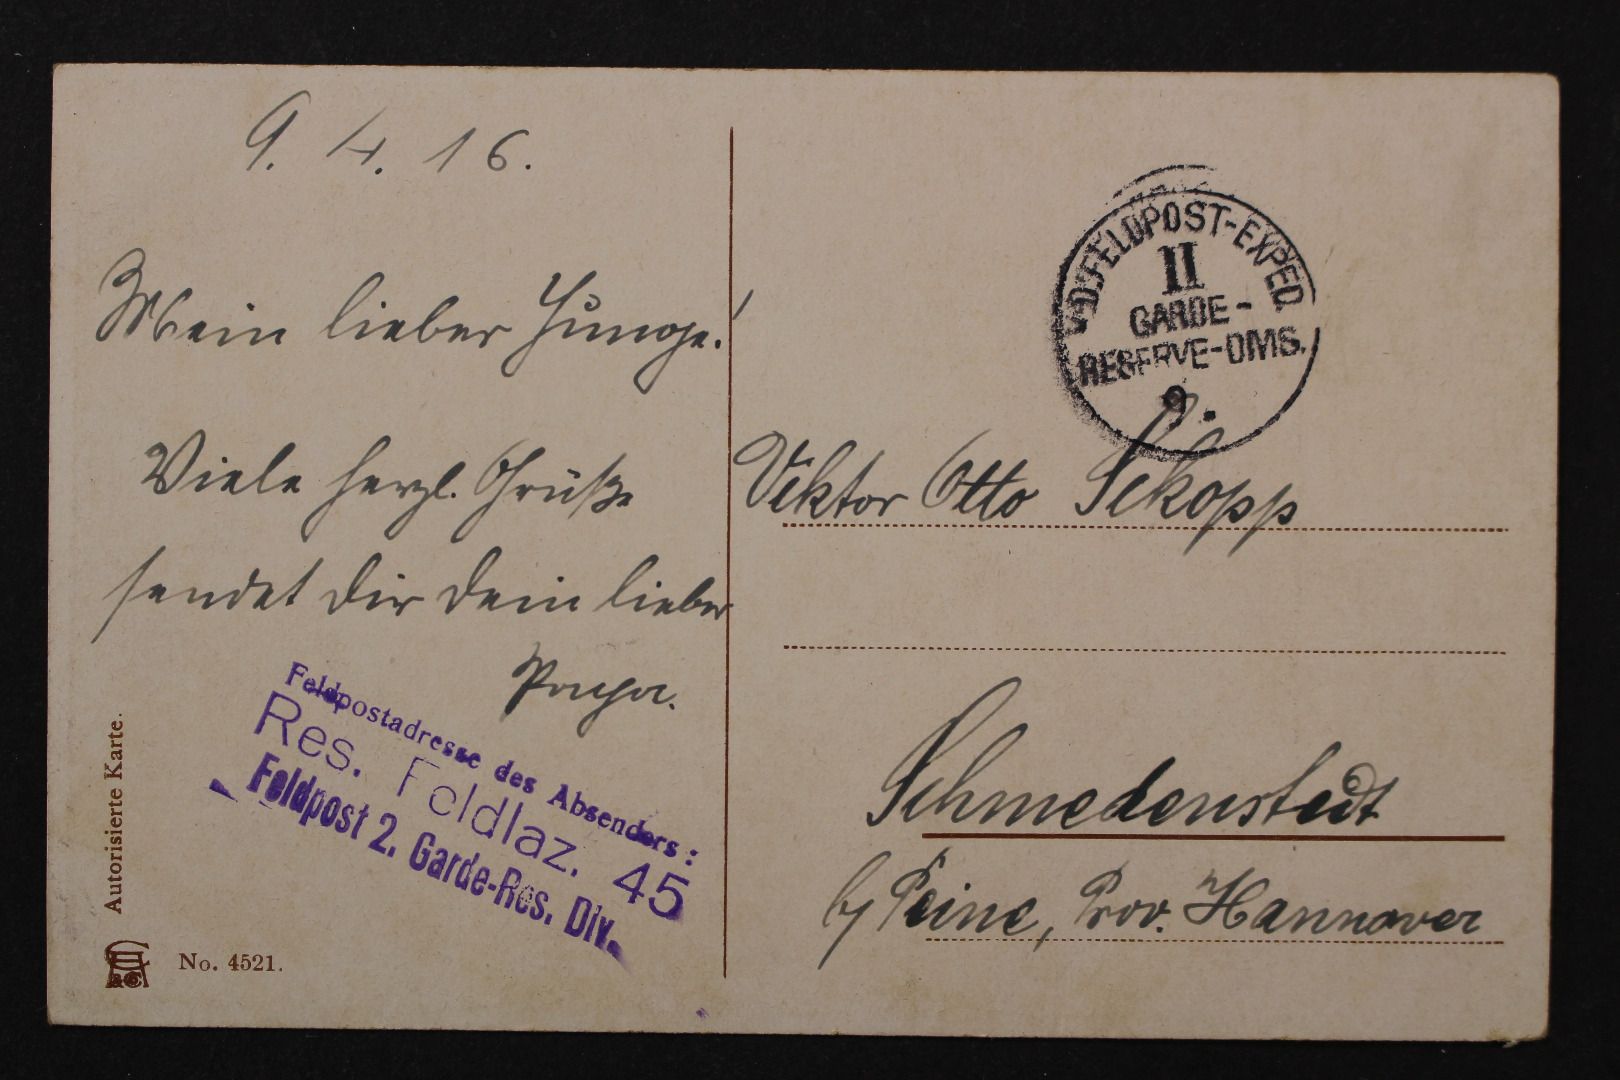 9. 4. 16.
Mein lieber Junge!
Viele herzl. Grüße
sendet dir dein lieber
Papa.
Feldpostadresse des Absenders:
Res. Feldlaz. 45
Feldpost 2. Garde-Res. Div.
Autorisierte Karte.
No. 4521.
K.D. FELDPOST-EXPED.
II
GARDE-
RESERVE-DIVIS.
9.
Viktor Otto Sckopp
Schmedenstedt
b/ Peine, Prov. Hannover